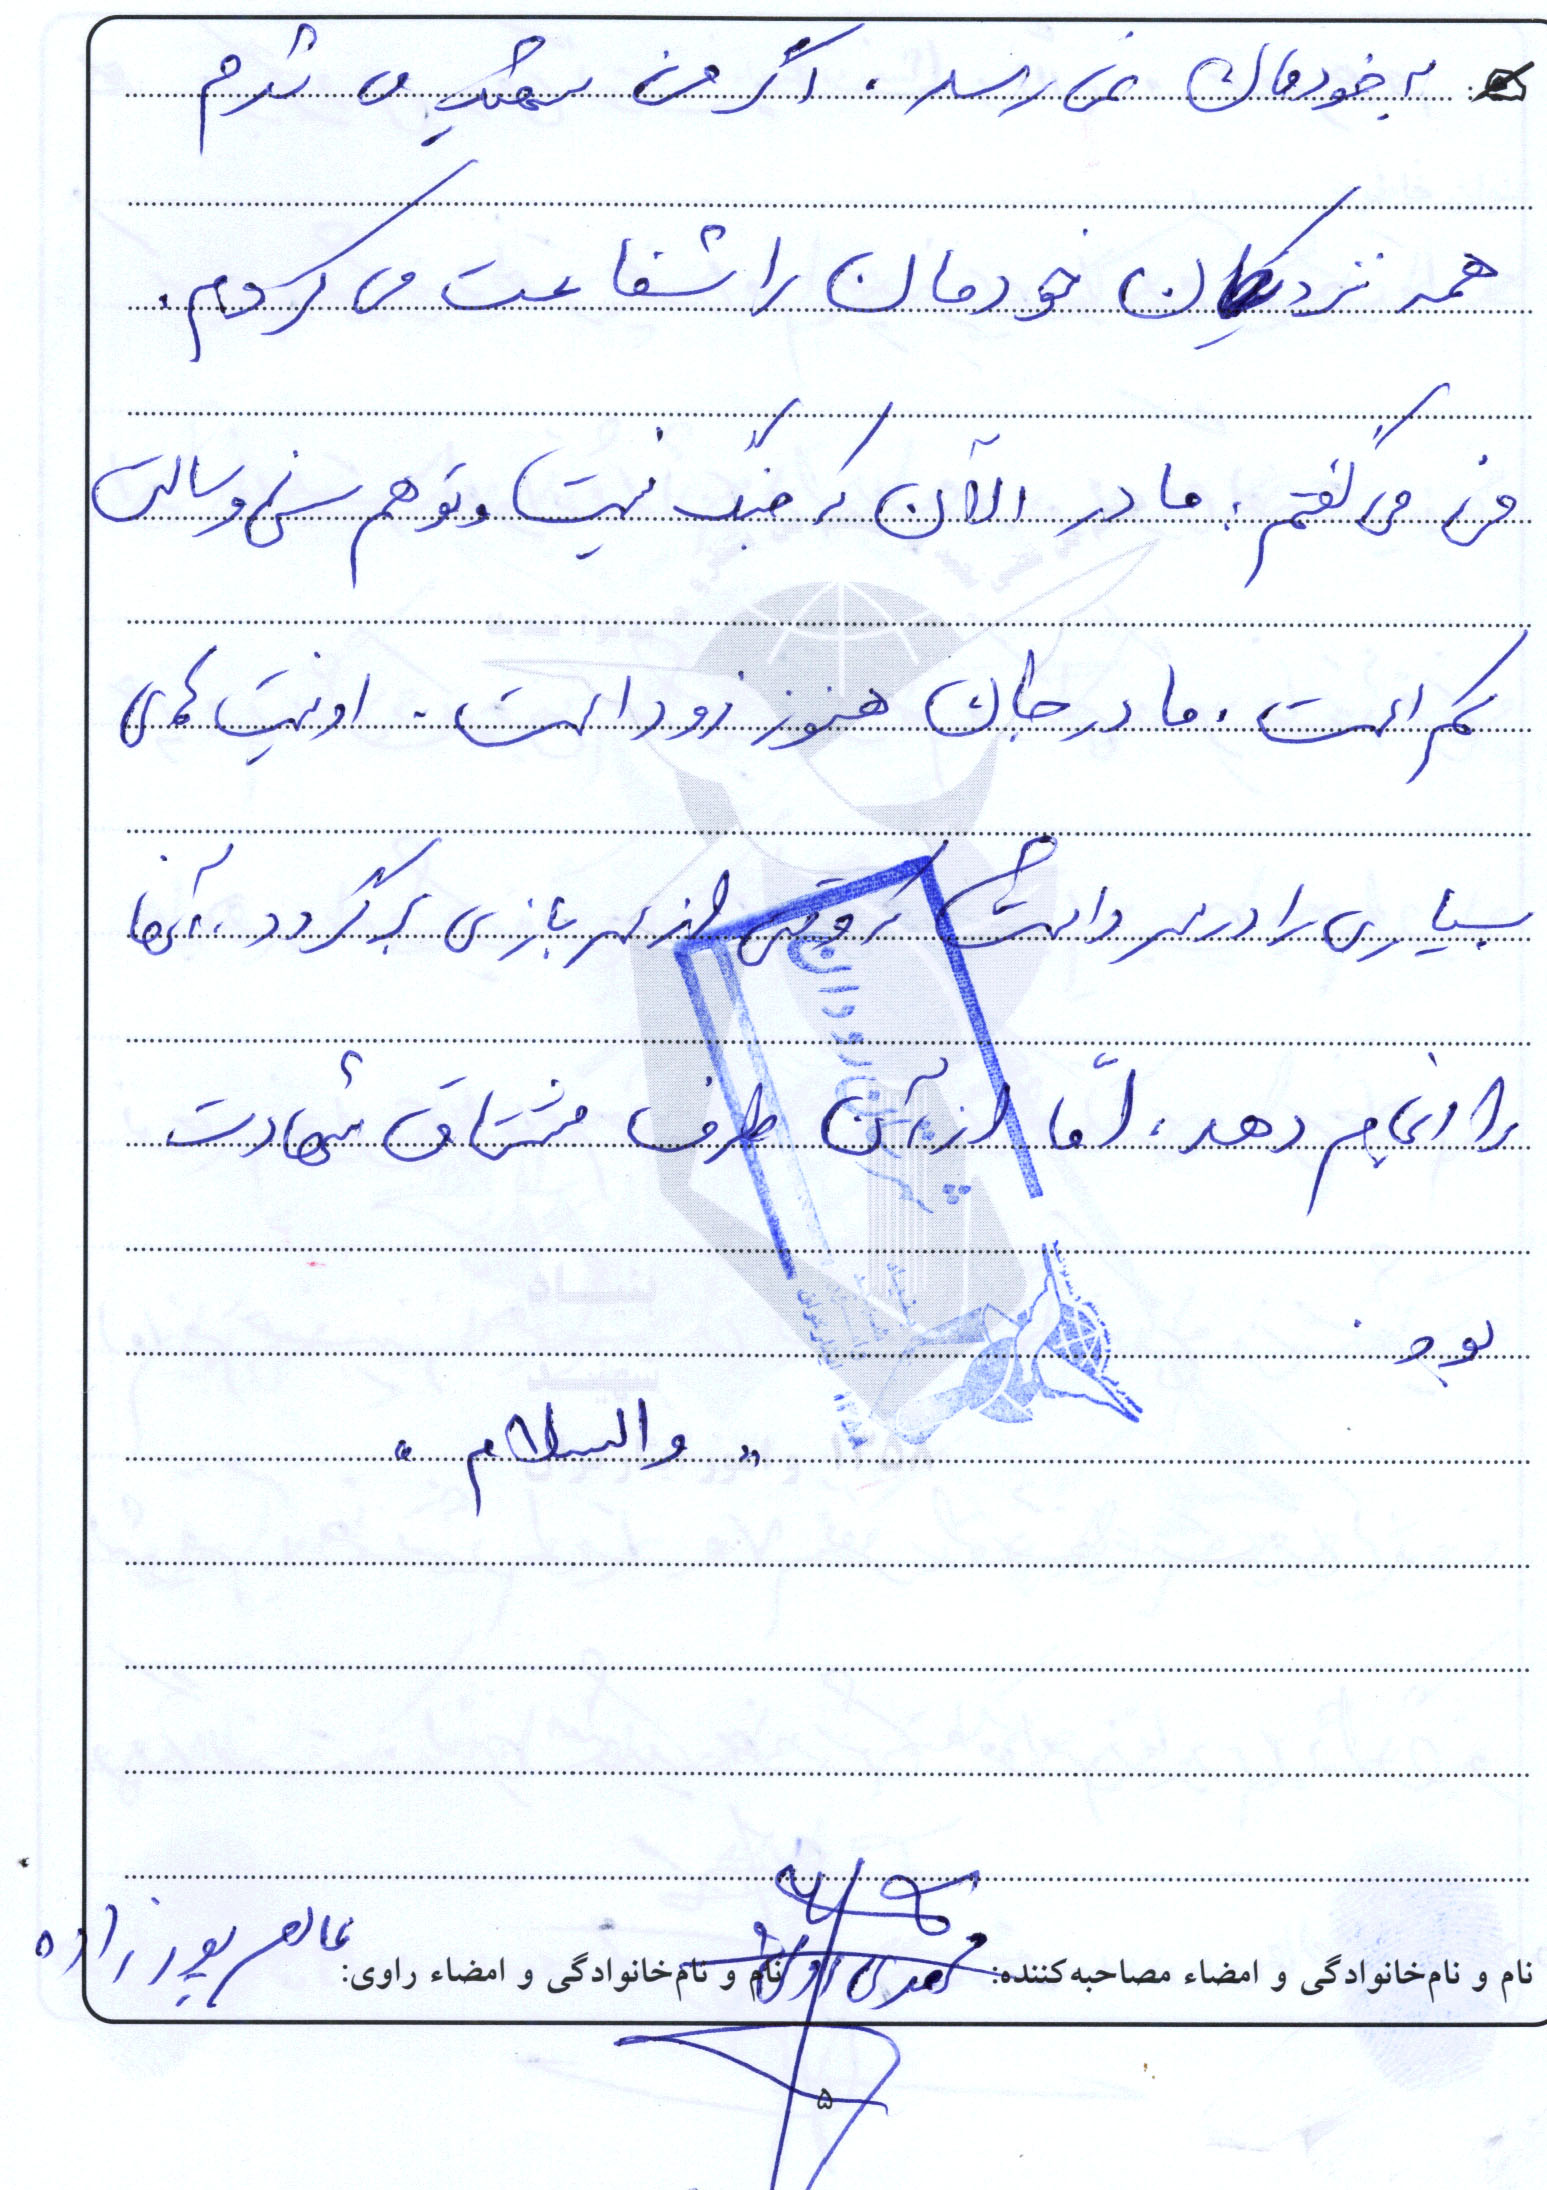 به خودمان نمی رسد. اگر من شهید می شدم
همه نزدیکان خودمان را شفاعت می کردم.
من می گفتم: مادر الآن که جنگ نیست و تو هم سن و سالت
کم است. مادر جان هنوز زود است. او نیت های
بسیاری را در سر داشت که وقتی از سربازی برگردد، آنها
را انجام دهد، امّا از آن طرف مشتاق شهادت
بود.
« والسلام »
نام و نام‌خانوادگی و امضاء مصاحبه‌کننده: مهدی
نام و نام‌خانوادگی و امضاء راوی: پورزاده
۵
بنیاد
شهید